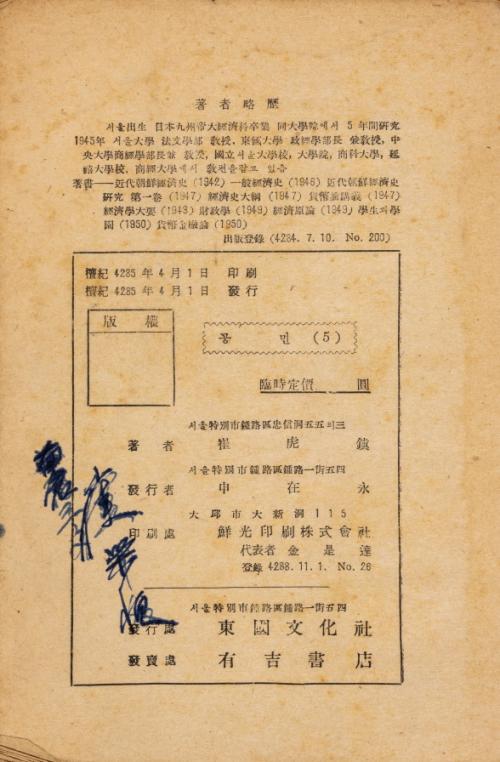 著者略歷
서울出生 日本九州帝大經濟科卒業 同大學院에서 5年間硏究
1945年 서울大學 法文學部 敎授, 東國大學 政經學部長 兼敎授, 中
央大學商經學部長兼 敎授, 國立서울大學校, 大學院, 商科大學,
大學校, 商經大學에서 敎편을잡고 있음
著書——近代朝鮮經濟史 (1942) 一般經濟史 (1946) 近代朝鮮經濟史
硏究 第一卷 (1947) 經濟史大綱 (1947) 貨幣論講義 (1947)
經濟學大要 (1948) 財政學 (1949) 經濟原論 (1949) 學生과學
園 (1950) 貨幣金融論 (1950)
出版登錄 (4284. 7. 10. No. 200)
檀紀 4285 年 4 月 1 日 印刷
檀紀 4285 年 4 月 1 日 發行
版權
(5)
臨時定價 圓
서울特別市鍾路區忠信洞五五의三
著者 崔虎鎭
서울特別市鍾路區鍾路一街五四
發行者 申在永
大邱市大新洞 115
印刷處 鮮光印刷株式會社
代表者 金是達
登錄 4288. 11. 1. No. 26
서울特別市鍾路區鍾路一街五四
發行處 東國文化社
發賣處 有吉書店